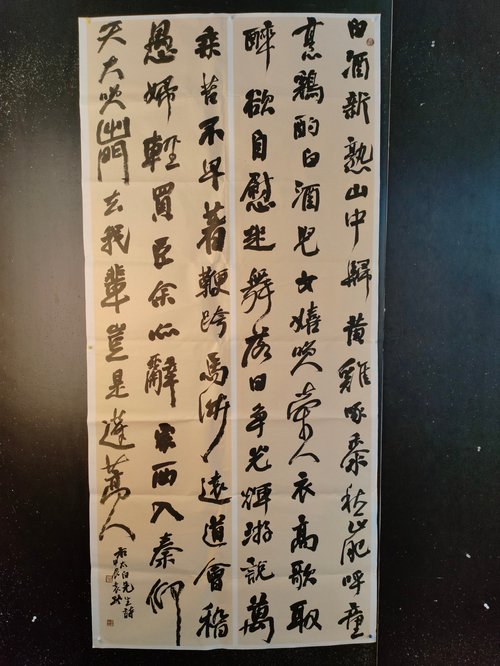 白酒新熟山中歸黄雞啄黍秋正肥呼童
烹鷄酌白酒兒女嬉咲牽人衣高歌取
醉欲自慰起舞落日爭光輝游說萬
乘苦不早著鞭跨馬涉遠道會稽
愚婦輕買臣余亦辭家西入秦仰
天大咲出門去我輩豈是蓬蒿人
右太白先生詩
甲辰